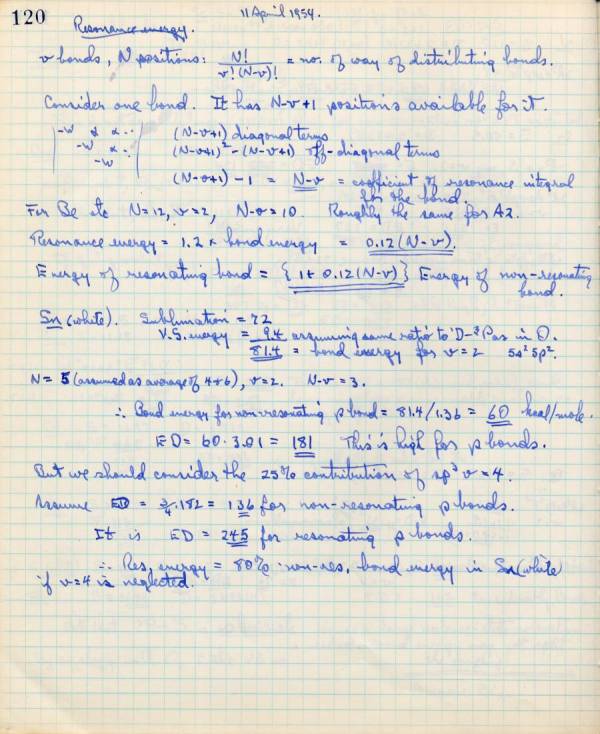 120
11 April 1954.
Resonance energy.
v bonds, N positions: N!/v!(N-v)! = no. of way of distributing bonds.
Consider one bond. It has N-v+1 positions available for it.
| -W α α ·· | (N-v+1) diagonal terms
-W α ·· (N-v+1)² - (N-v+1) off-diagonal terms
-W
(N-v+1) - 1 = N-v = coefficient of resonance integral
for the bond
For Be etc N=12, v=2, N-v=10. Roughly the same for A2.
Resonance energy = 1.2 × bond energy = 0.12(N-v).
Energy of resonating bond = {1+0.12(N-v)} Energy of non-resonating
bond.
Sn (white). Sublimation = 72
V.S. energy = 9.4 assuming same ratio to ¹D-³P as in O.
81.4 = bond energy for v=2 5s²5p².
N = 5 (assumed as average of 4+6), v=2. N-v=3.
∴ Bond energy for non-resonating p bond = 81.4/1.36 = 60 kcal/mole.
ED = 60·3.01 = 181 This is high for p bonds.
But we should consider the 25% contribution of sp³ v=4.
Assume ED = 3/4·182 = 136 for non-resonating p bonds.
It is ED = 245 for resonating p bonds.
∴ Res. energy = 80% non-res. bond energy in Sn (white
if v=4 is neglected.